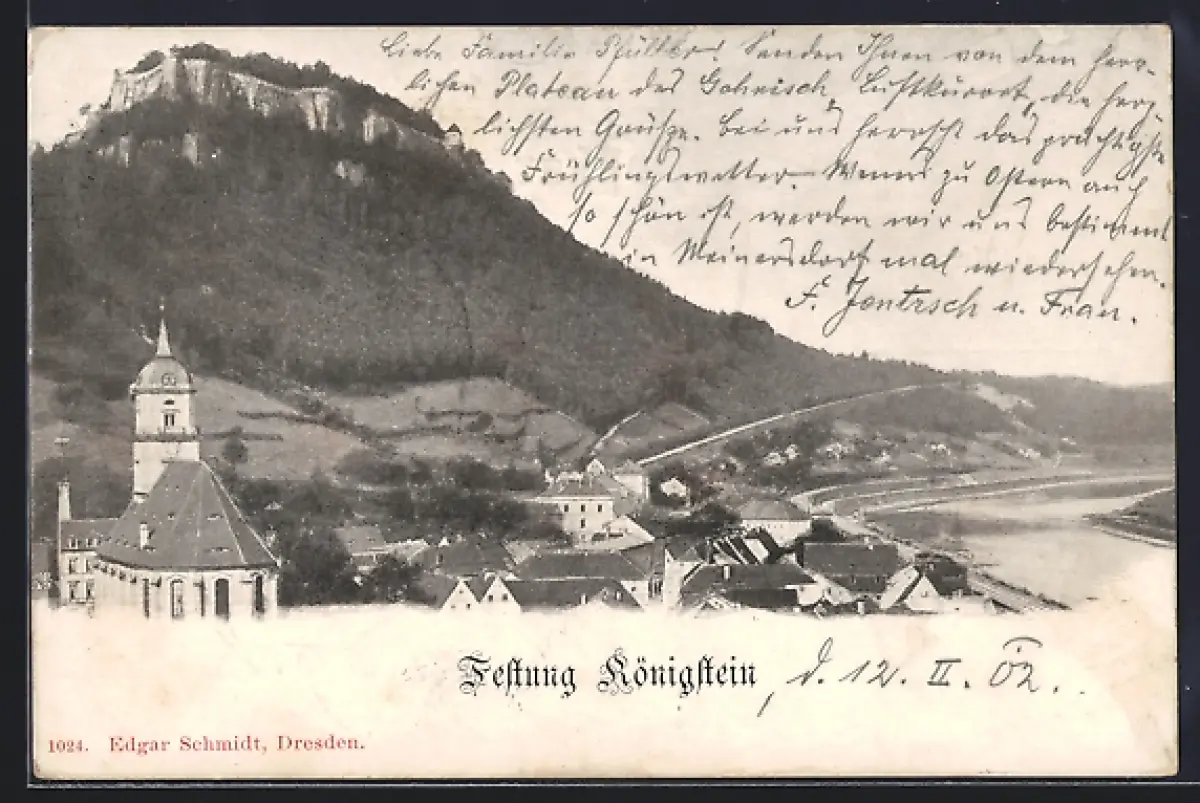 Liebe Familie Senden Ihnen von dem herr-
lichen Plateau des Gohrisch, Luftkurort, die herz-
lichsten Grüße. Bei uns herrscht das prächtigste
Frühlingswetter. Wenns zu Ostern auch
so schön ist, werden wir uns bestimmt
in Meinersdorf mal wiedersehen.
F. Jentzsch u. Frau.
Festung Königstein, d. 12. II. 02.
1024. Edgar Schmidt, Dresden.